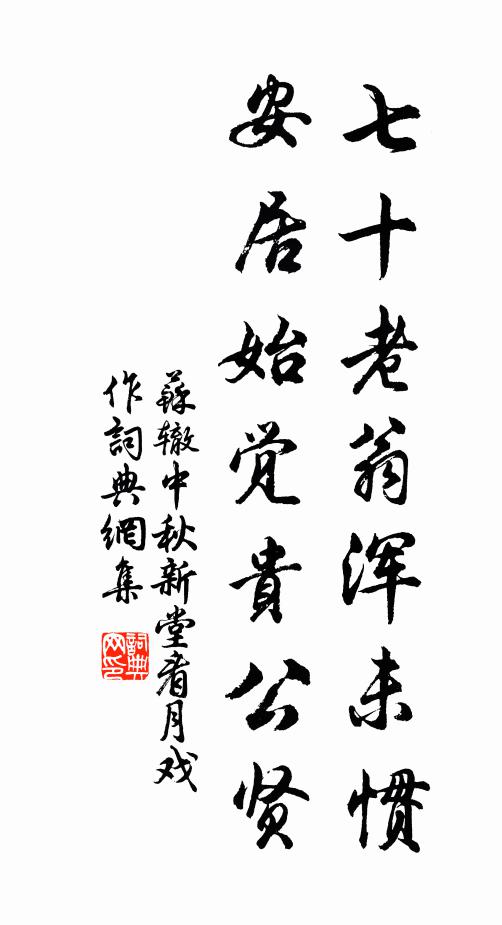 七十老翁浑未惯
安居始觉貴公贤
蘇辙中秋新堂看月戏
作詞典網集
詞典网印